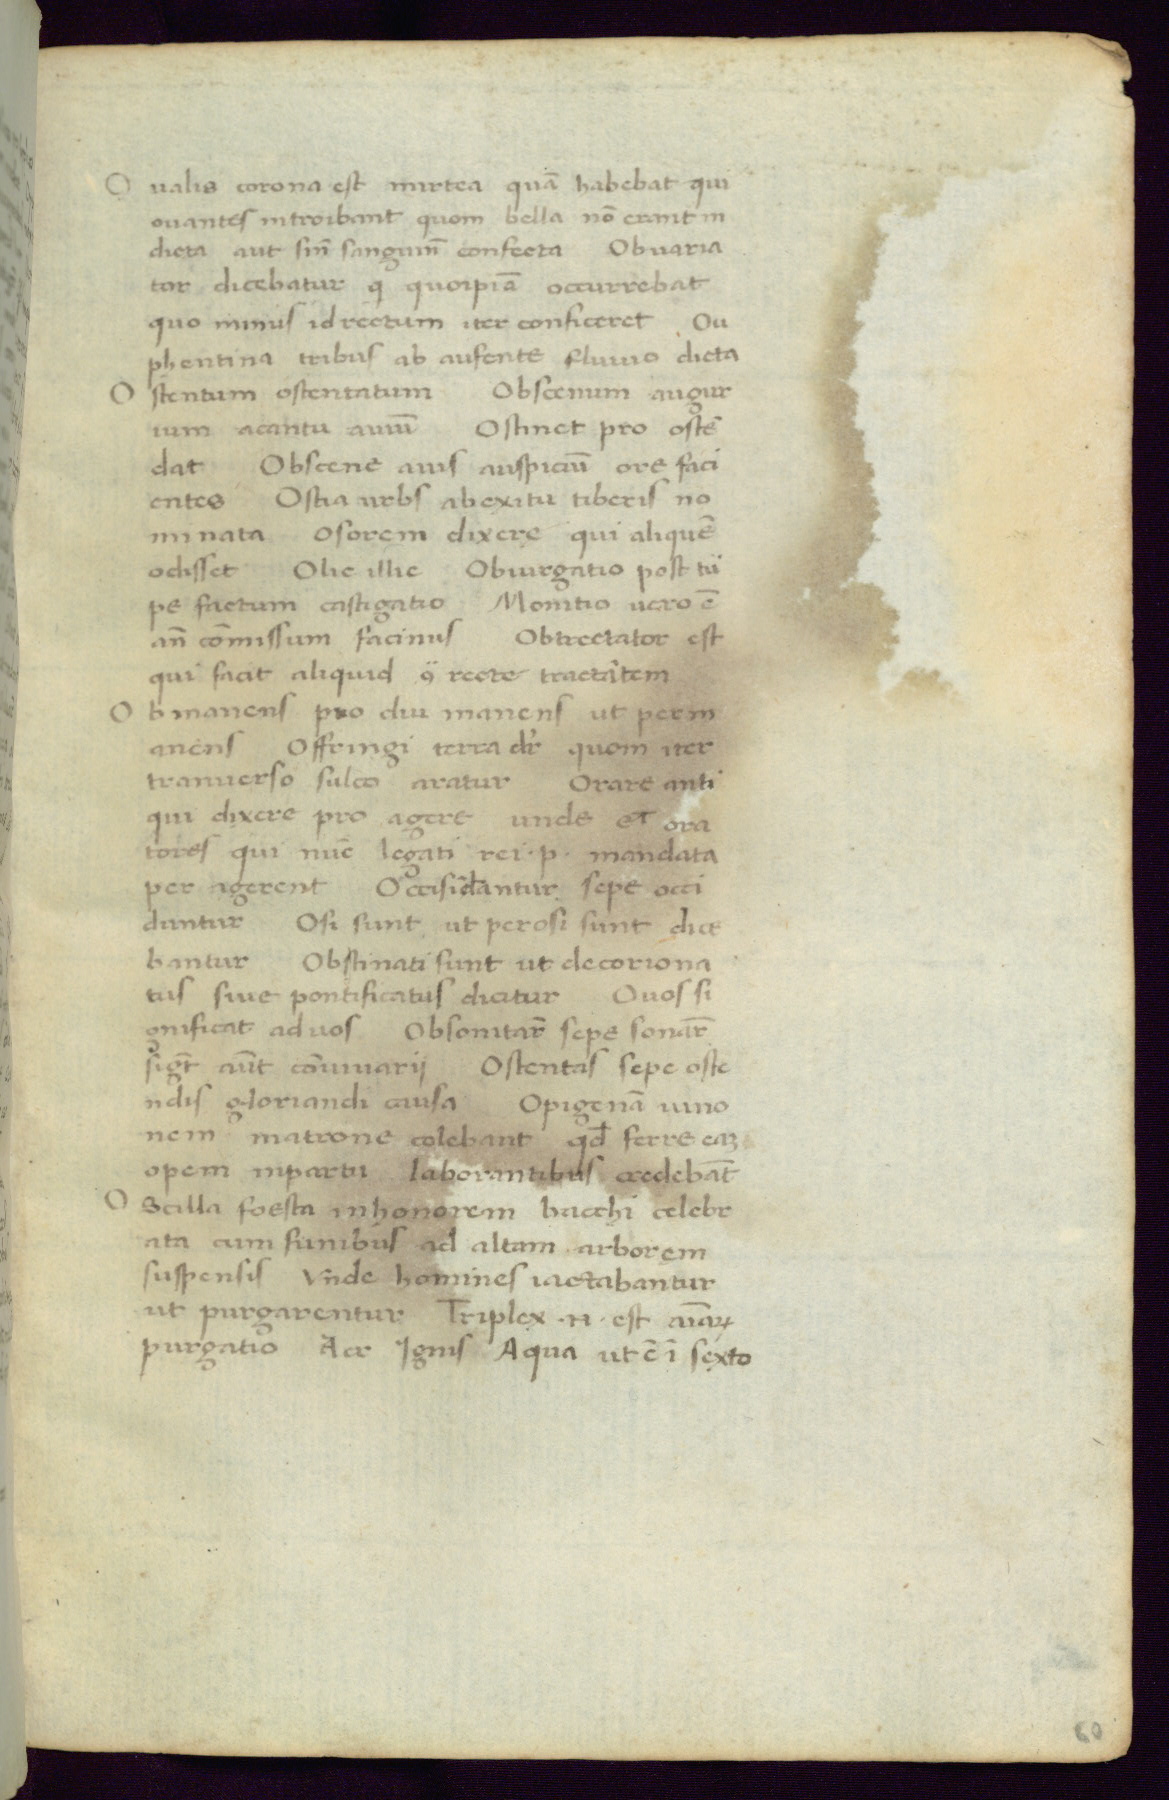 O ualis corona est mirtea quā habebat qui
ouantes introibant quom bella nō erant in
dicta aut sin̄ sanguin̄ confecta Obuaria
tor dicebatur q quoipiā occurrebat
quo minus id rectum iter conficeret Ou
phentina tribus ab aufente fluuio dicta
O stentum ostentatum Obscenum augur
ium acantu auiū Ostinet pro ostē
dat Obscene auis auspiciū ore faci
entes Ostia urbs abexitu tiberis no
minata Osorem dixere qui aliquē
odisset Olic illic Obiurgatio post tū
pe factum castigatio Monitio uero ē
an̄ cōmissum facinus Obtrectator est
qui facit aliquid recte tractātem
O b manens pro diu manens ut perm
anens Offringi terra dr̄ quom iter
tranuerso sulco aratur Orare anti
qui dixere pro agere unde et ora
tores qui nūc legati rei · p · mandata
per agerent Occisidantur sepe occi
duntur Osi sunt ut perosi sunt dice
bantur Obstinati sunt ut decoriona
tus siue pontificatus dicitur Ouos si
gnificat aduos Obsonitar̄ sepe sonar̄
sigt̄ aūt cōuiuarij Ostentas sepe oste
ndis gloriandi causa Opigenā iuno
nem matrone colebant qđ ferre eaꝫ
opem inpartu laborantibus credebāt
O scilla foesta inhonorem bacchi celebr
ata cum funibus ad altam arborem
suspensis Vn̄de homines iactabantur
ut purgarentur Triplex · n · est aīaꝝ
purgatio Aer Ignis Aqua ut ē ī sexto
60